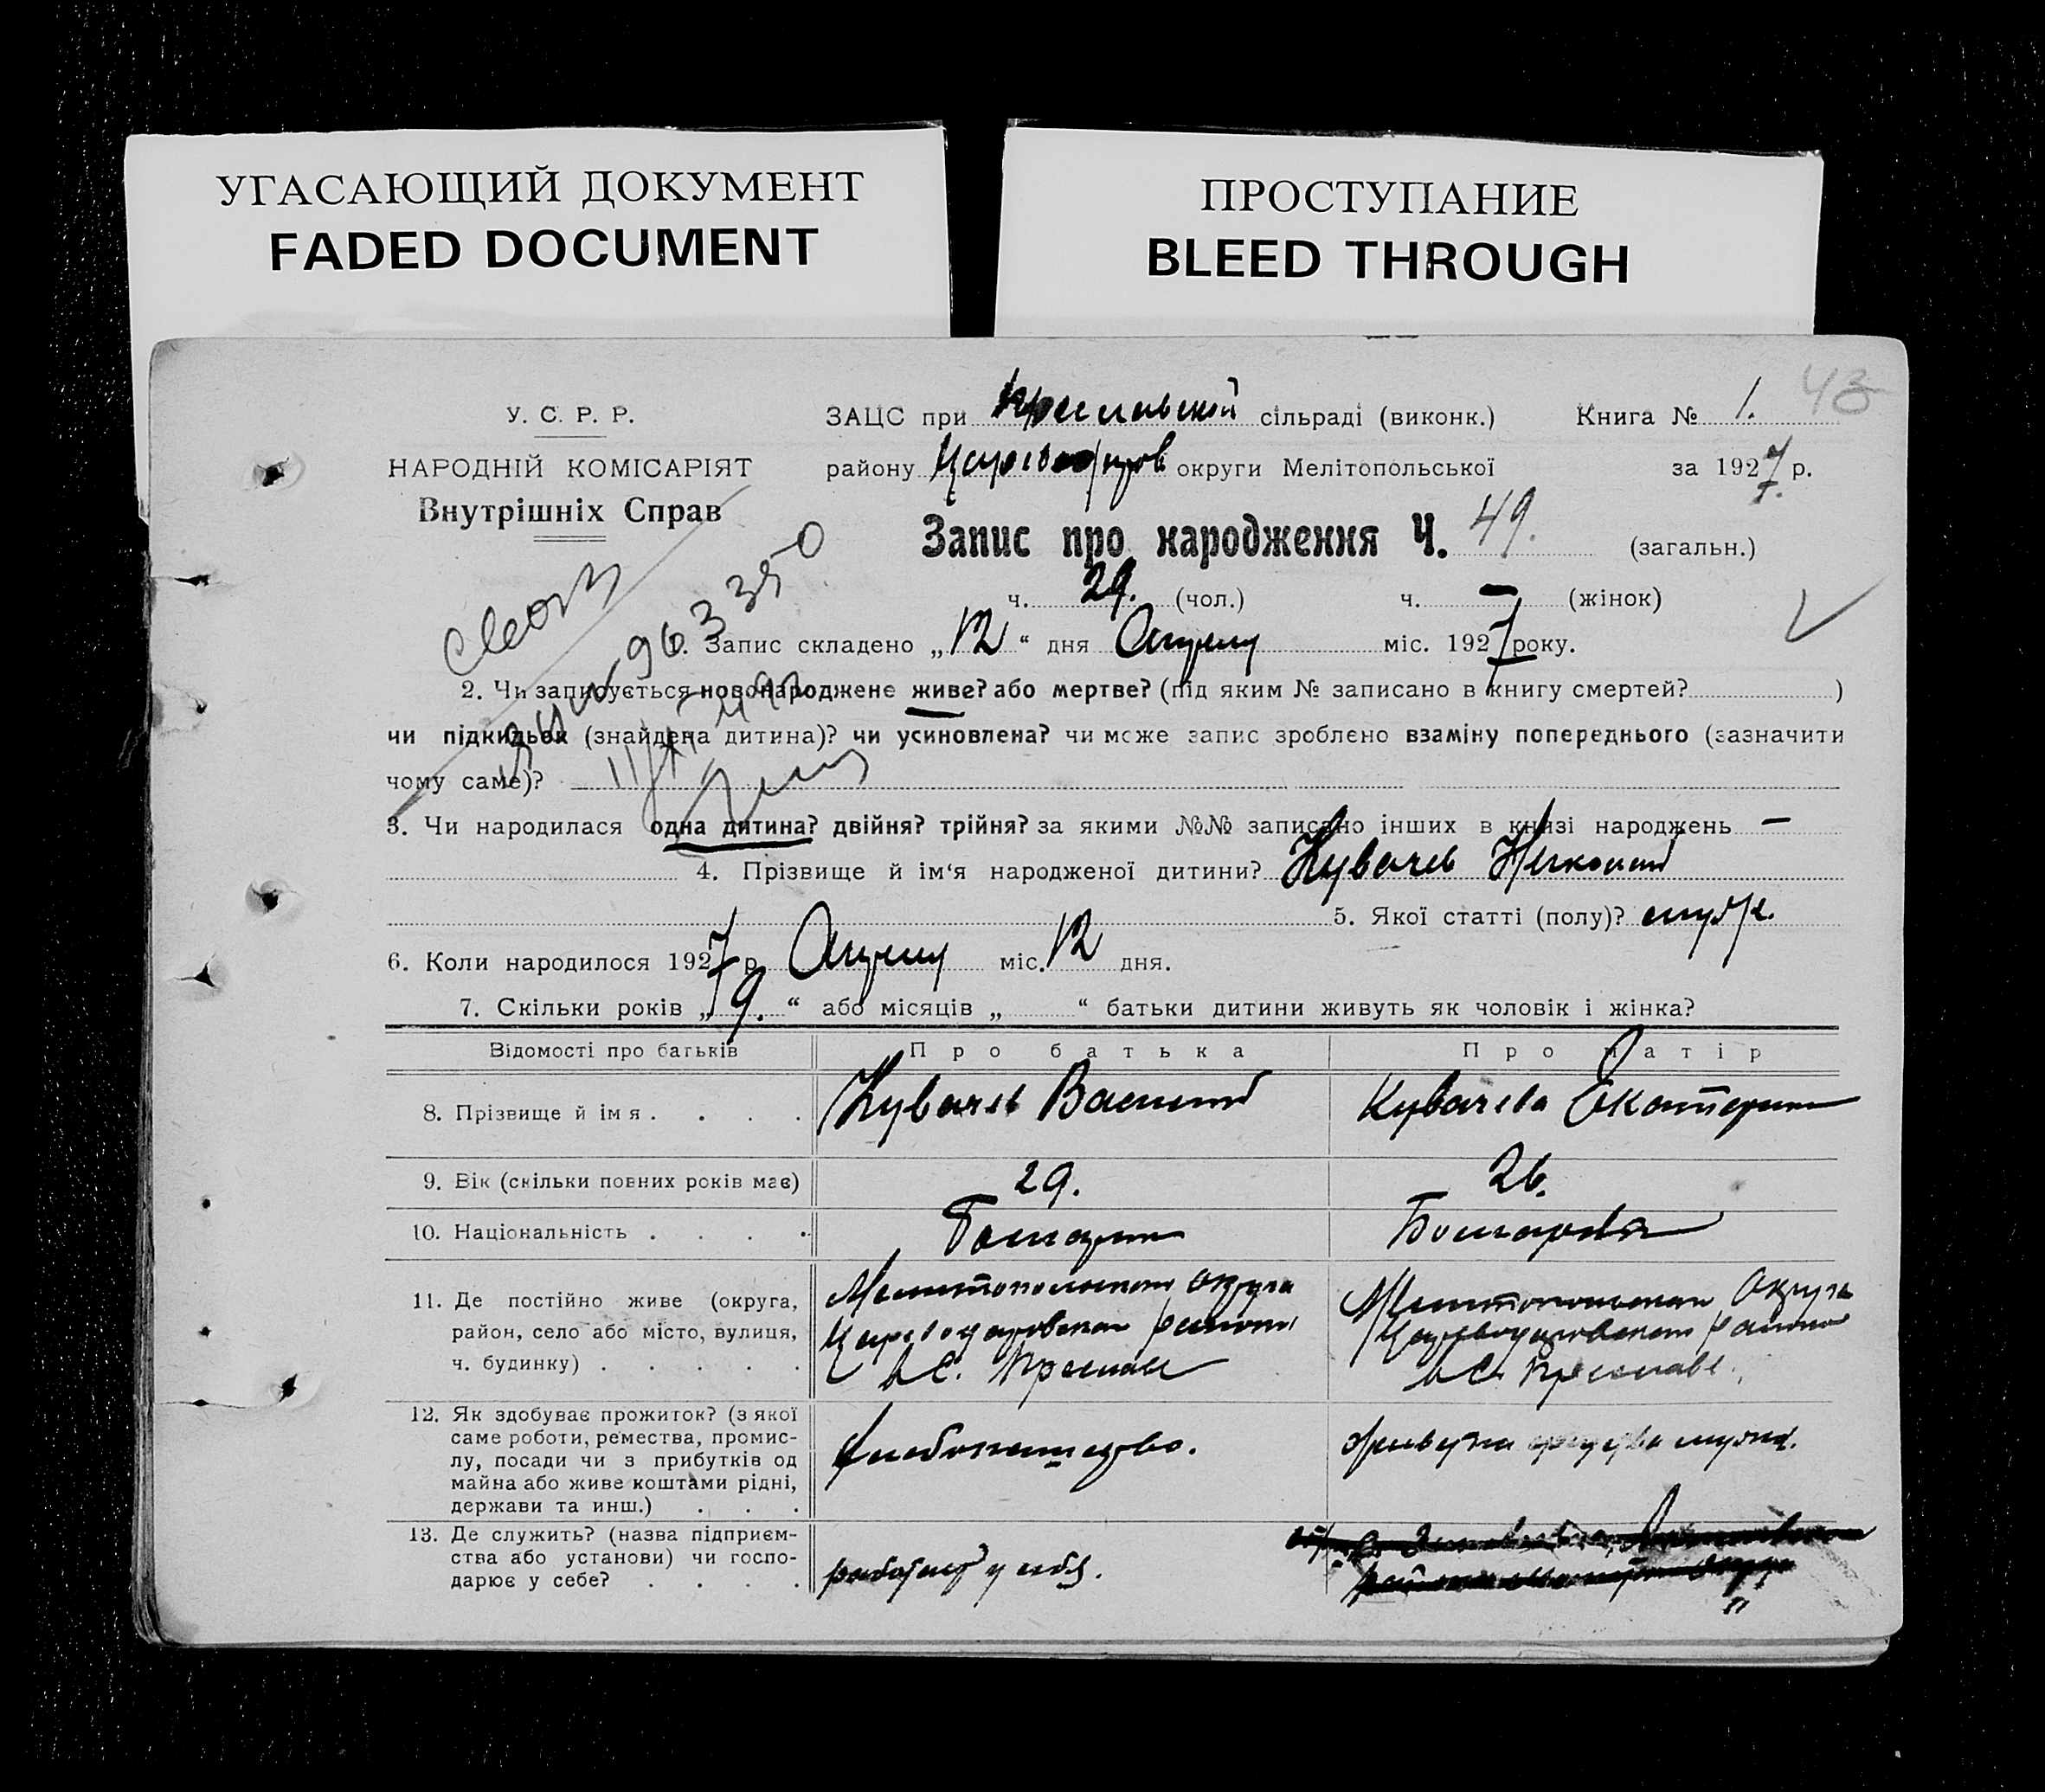 УГАСАЮЩИЙ ДОКУМЕНТ
FADED DOCUMENT
ПРОСТУПАНИЕ
BLEED THROUGH
43
У. С. Р. Р.
НАРОДНІЙ КОМІСАРІЯТ
Внутрішніх Справ
ЗАЦС при Преславской сільраді (виконк.) Книга № 1.
району округи Мелітопольської за 1927 р.
Запис про народження Ч. 49. (загальн.)
ч. 29. (чол.) ч. – (жінок)
1. Запис складено „12“ дня Апреля міс. 1927 року.
2. Чи записується новонароджене живе? або мертве? (під яким № записано в книгу смертей? )
чи підкидьок (знайдена дитина)? чи усиновлена? чи може запис зроблено взаміну попереднього (зазначити
чому саме)?
963350
3. Чи народилася одна дитина? двійня? трійня? за якими №№ записано інших в книзі народжень –
4. Прізвище й ім‘я народженої дитини? Кувачев Николай
5. Якої статті (полу)? муж.
6. Коли народилося 1927 р. Апреля міс. 12 дня.
7. Скільки років „9.“ або місяців „ “ батьки дитини живуть як чоловік і жінка?
Відомості про батьків Про батька Про матір
8. Прізвище й імя . . . . Кувачев Василий Кувачева Екатерина
9. Вік (скільки повних років має) 29. 26.
10. Національність . . . . Болгарин Болгарка
11. Де постійно живе (округа,
район, село або місто, вулиця,
ч. будинку) . . . . .
Мелитопольская округа
Цареводаровская района
в С. Преслав
Мелитопольская Округа
Цареводаровская района
в С. Преславе
12. Як здобуває прожиток? (з якої
саме роботи, ремества, промис-
лу, посади чи з прибутків од
майна або живе коштами рідні,
держави та инш.) . . .
хлебопашество.
средства мужа.
13. Де служить? (назва підприєм-
ства або установи) чи госпо-
дарює у себе? . . . .
работает у себя.